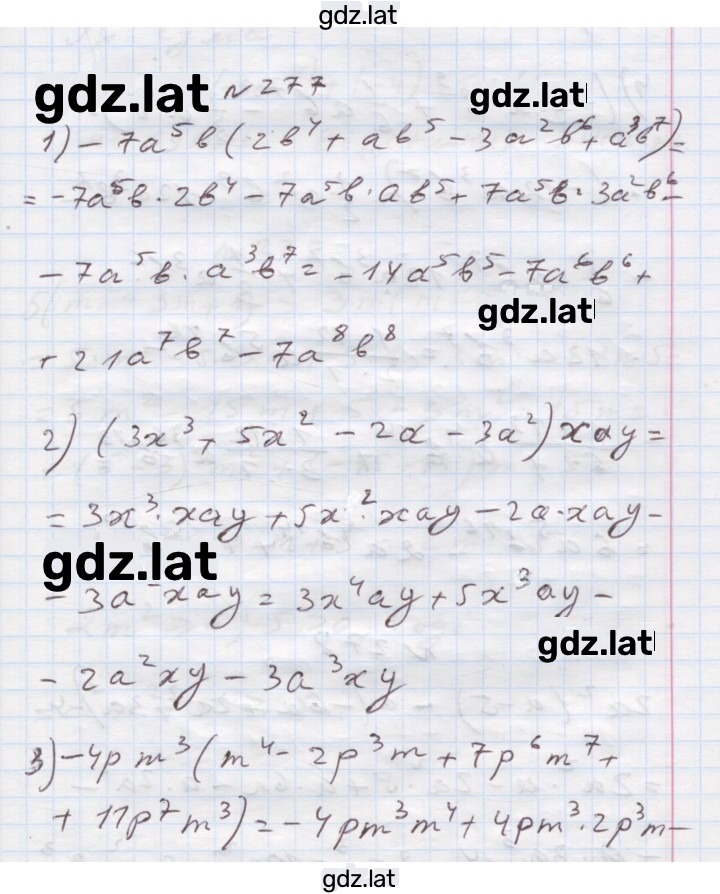 gdz.lat
gdz.lat №277 gdz.lat
1) −7a⁵b(2b⁴ + ab⁵ − 3a²b⁶ + a³b⁷) =
= −7a⁵b · 2b⁴ − 7a⁵b · ab⁵ + 7a⁵b · 3a²b⁶ −
− 7a⁵b · a³b⁷ = −14a⁵b⁵ − 7a⁶b⁶ +
gdz.lat
+ 21a⁷b⁷ − 7a⁸b⁸
2) (3x³ + 5x² − 2a − 3a²) xay =
= 3x³ · xay + 5x² · xay − 2a · xay −
gdz.lat
− 3a² xay = 3x⁴ay + 5x³ay −
gdz.lat
− 2a²xy − 3a³xy
3) −4pm³(m⁴ − 2p³m + 7p⁶m⁷ +
+ 11p⁷m³) = −4pm³m⁴ + 4pm³ · 2p³m −
gdz.lat